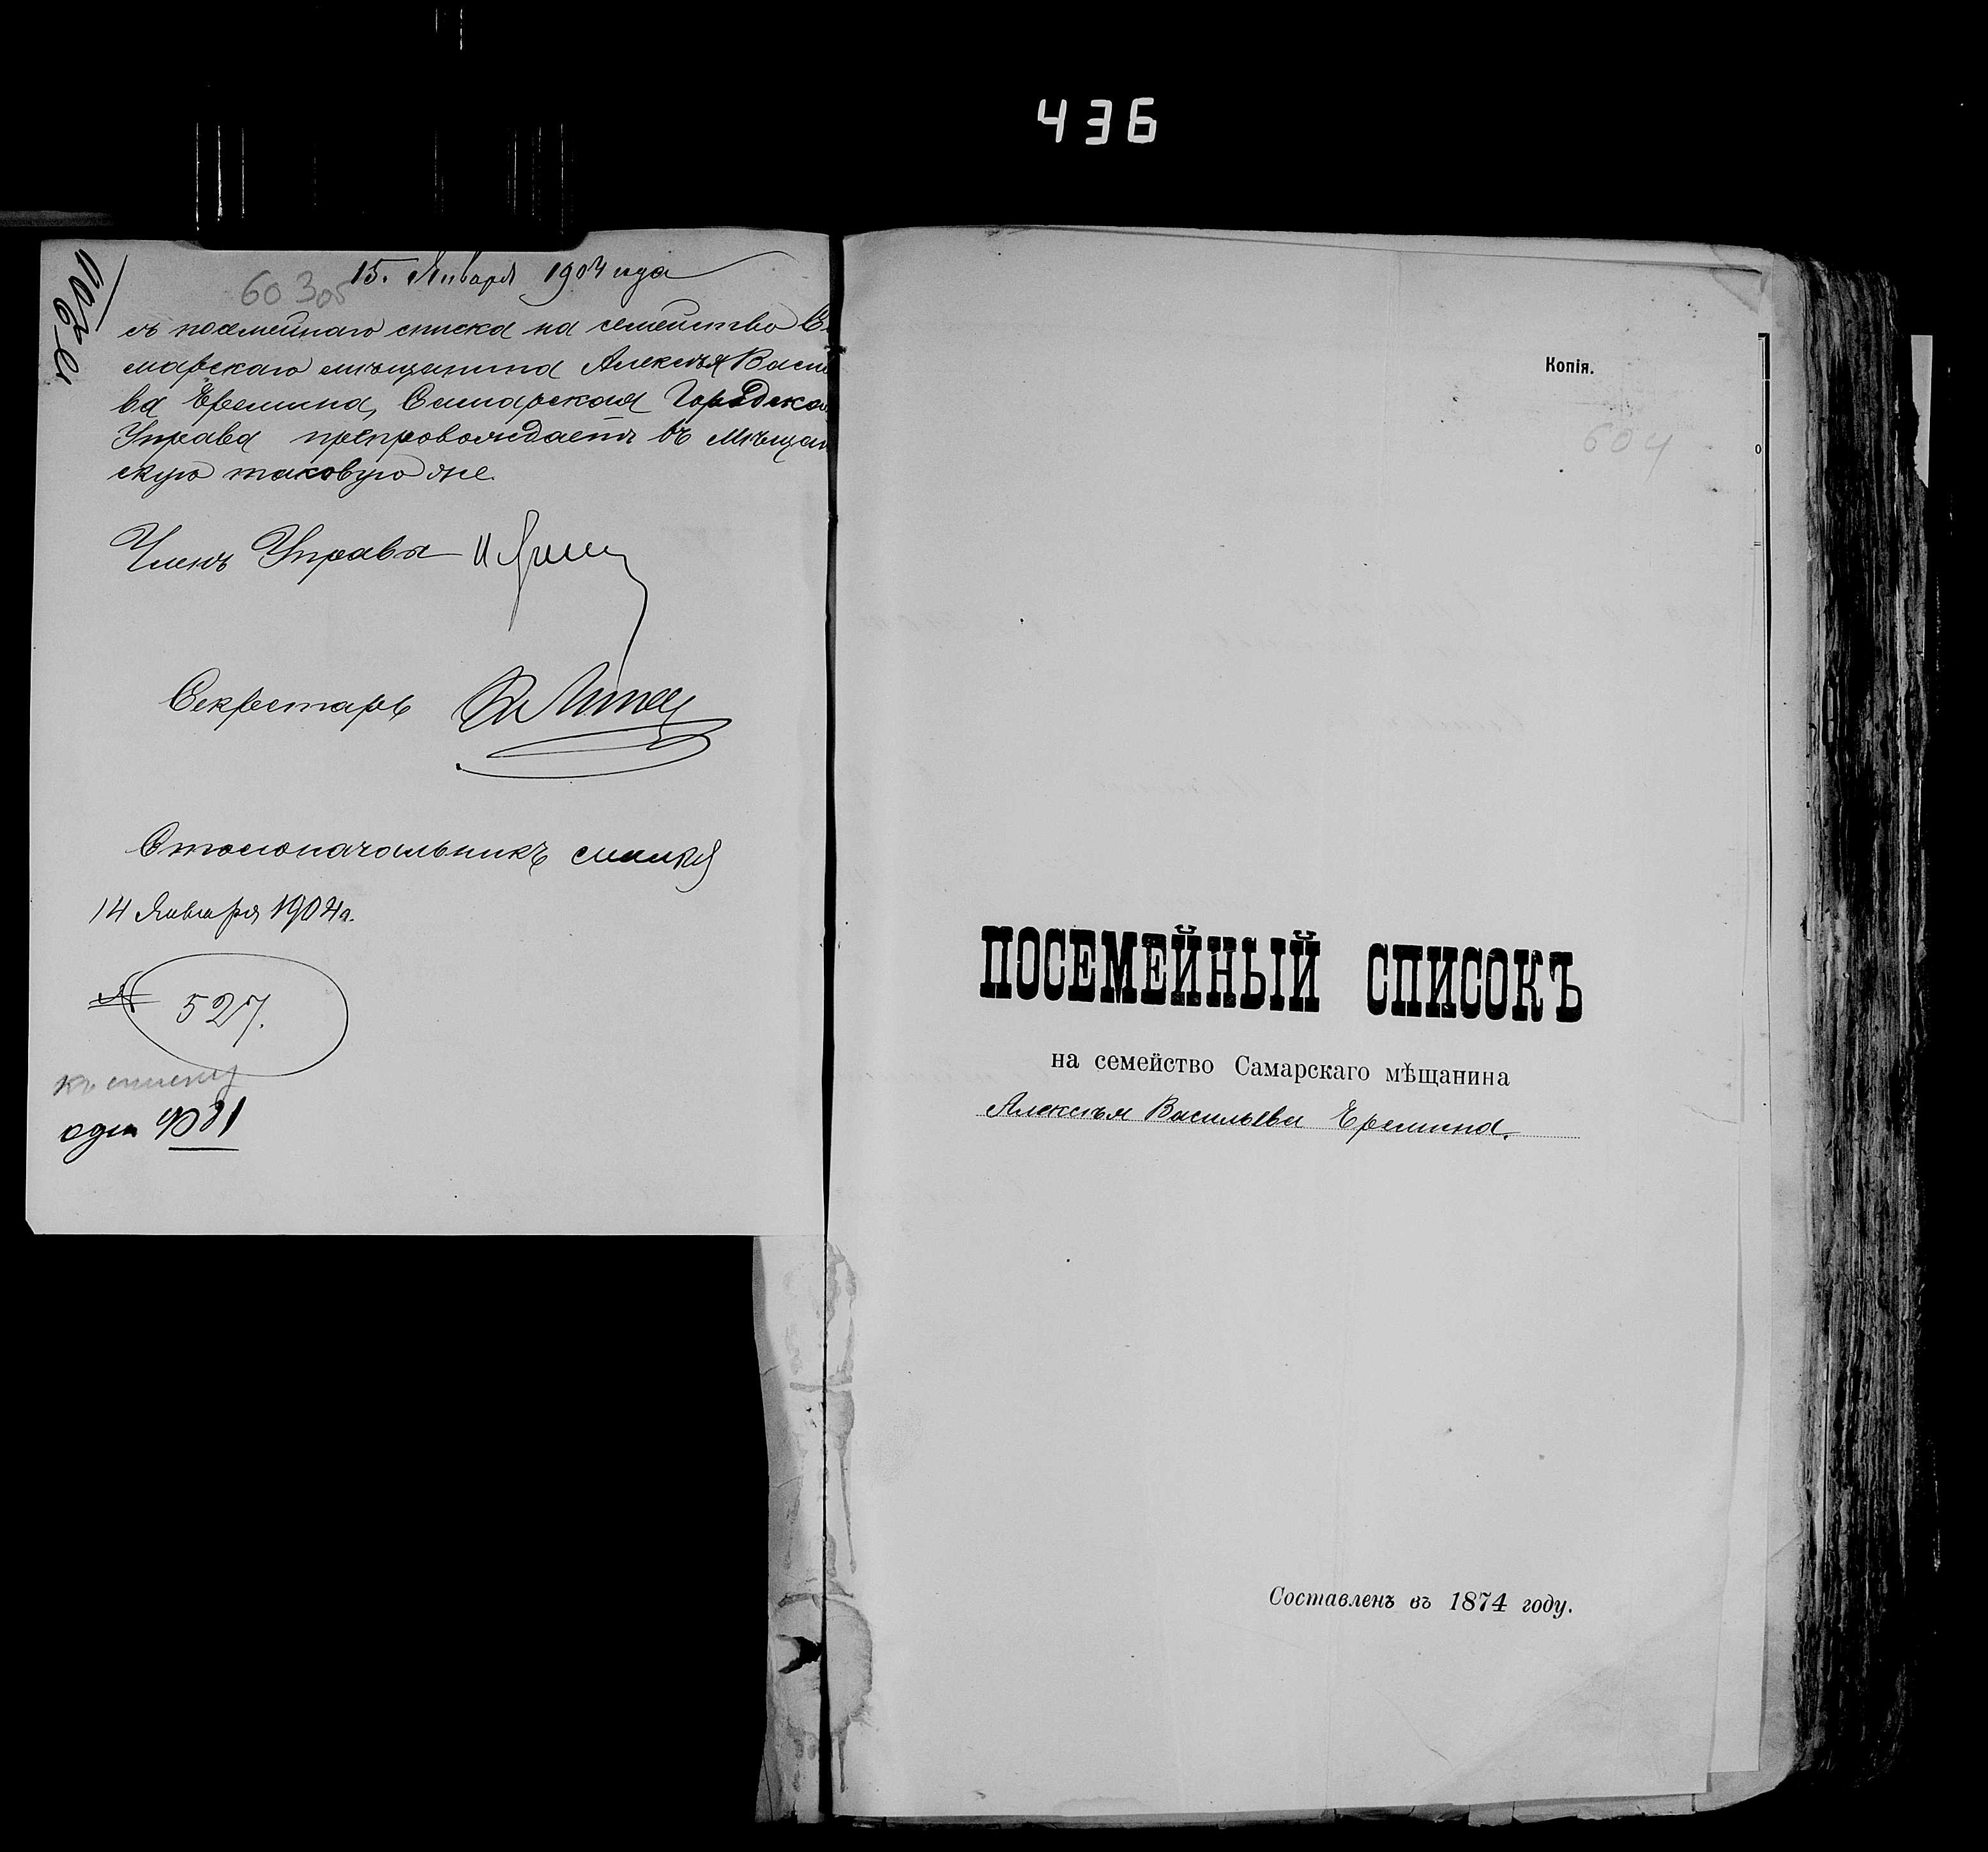 436
603 об
15. Января 1904 года
съ посемейнаго списка на семейство Са
марскаго мѣщанина Алексѣя Василь
ва Еремина, Самарская Городская
Управа препровождаетъ въ Мѣщан
скую таковую же.
Членъ Управы
Секретарь
Столоначальникъ
14 Января 1904 г.
№ 527.
къ списку
Копія.
604
ПОСЕМЕЙНЫЙ СПИСОКЪ
на семейство Самарскаго мѣщанина
Алексѣя Васильева Еремина.
Составленъ въ 1874 году.